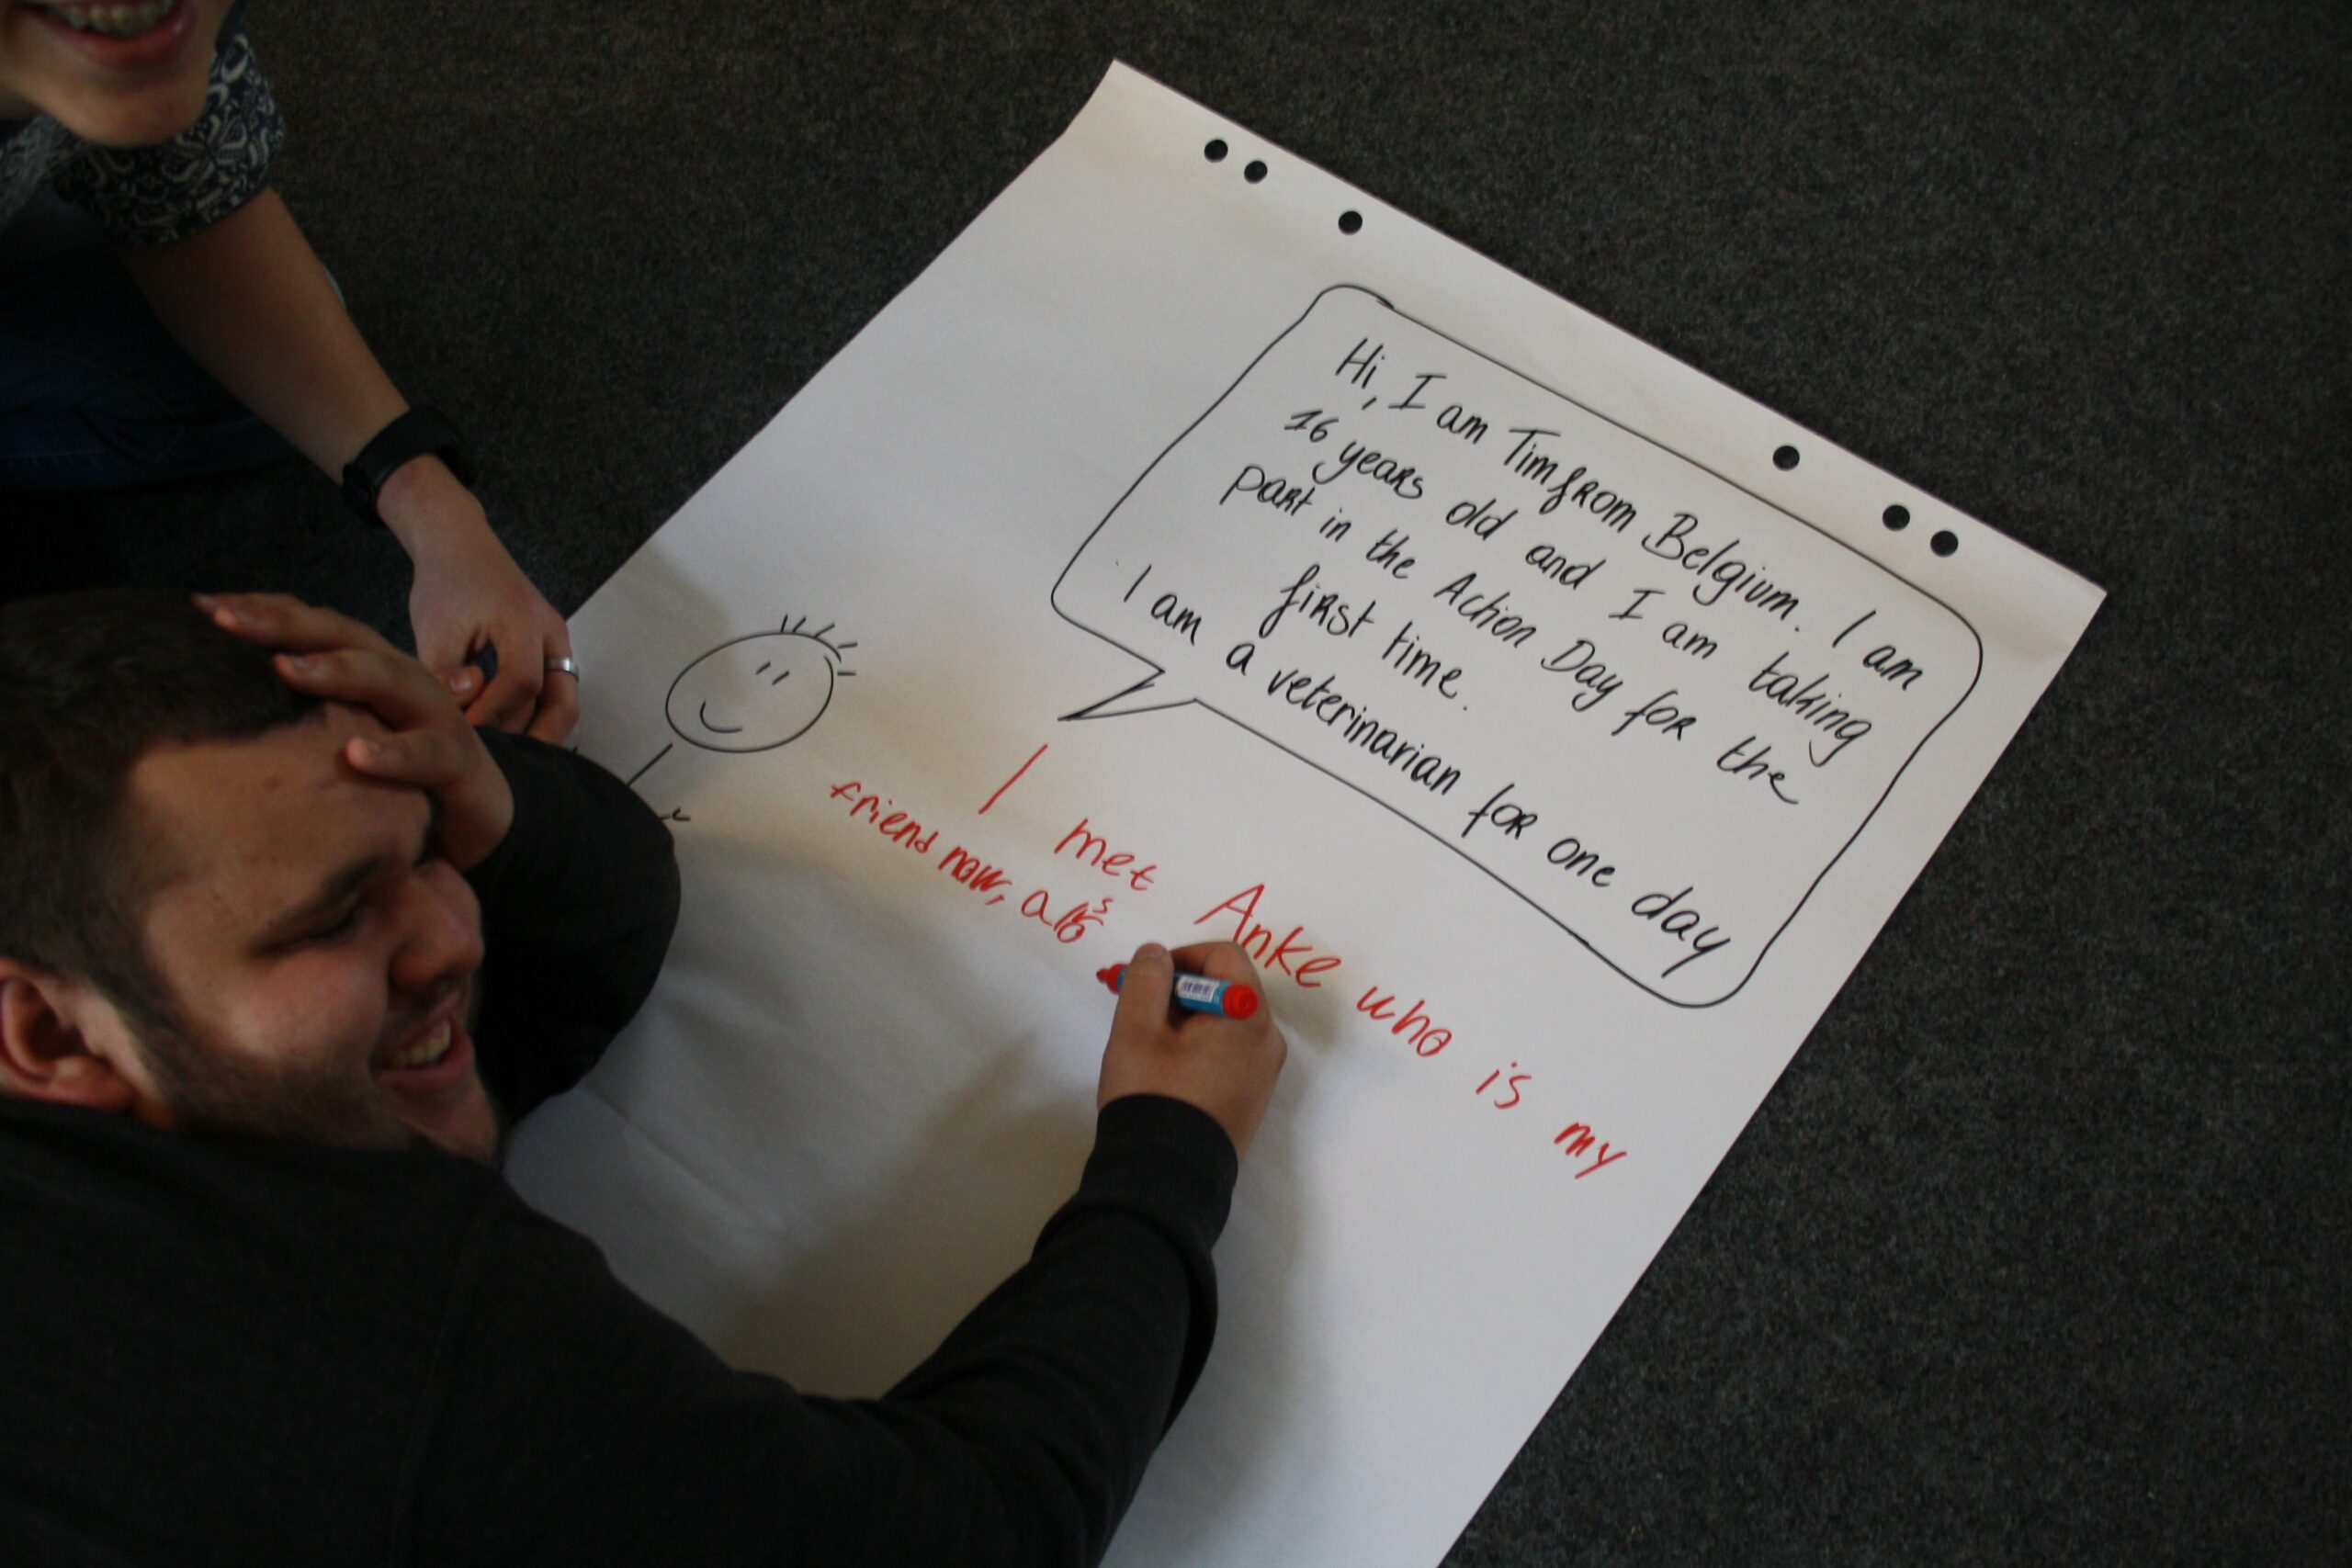 Hi, I am Tim from Belgium. I am
16 years old and I am taking
part in the Action Day for the
first time.
I am a veterinarian for one day
I met Anke who is my
friend now, also